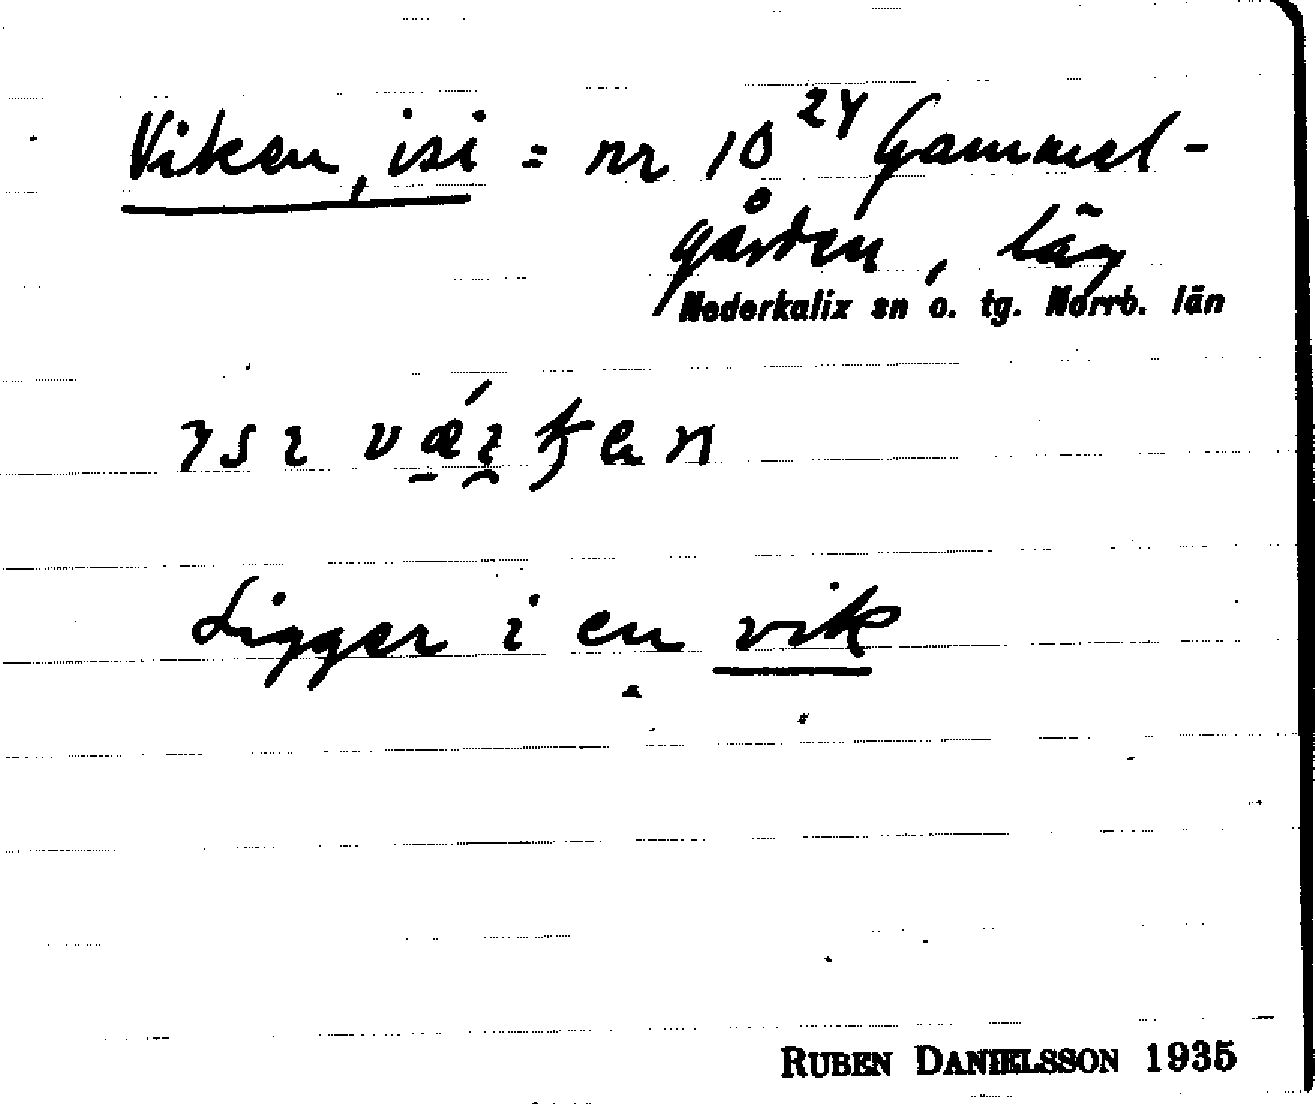 Viken, isi = nr 10 24 Gammel-
gården, läg
Nederkalix sn o. tg. Norrb. län
Ligger i en vik
RUBEN DANIELSSON 1935